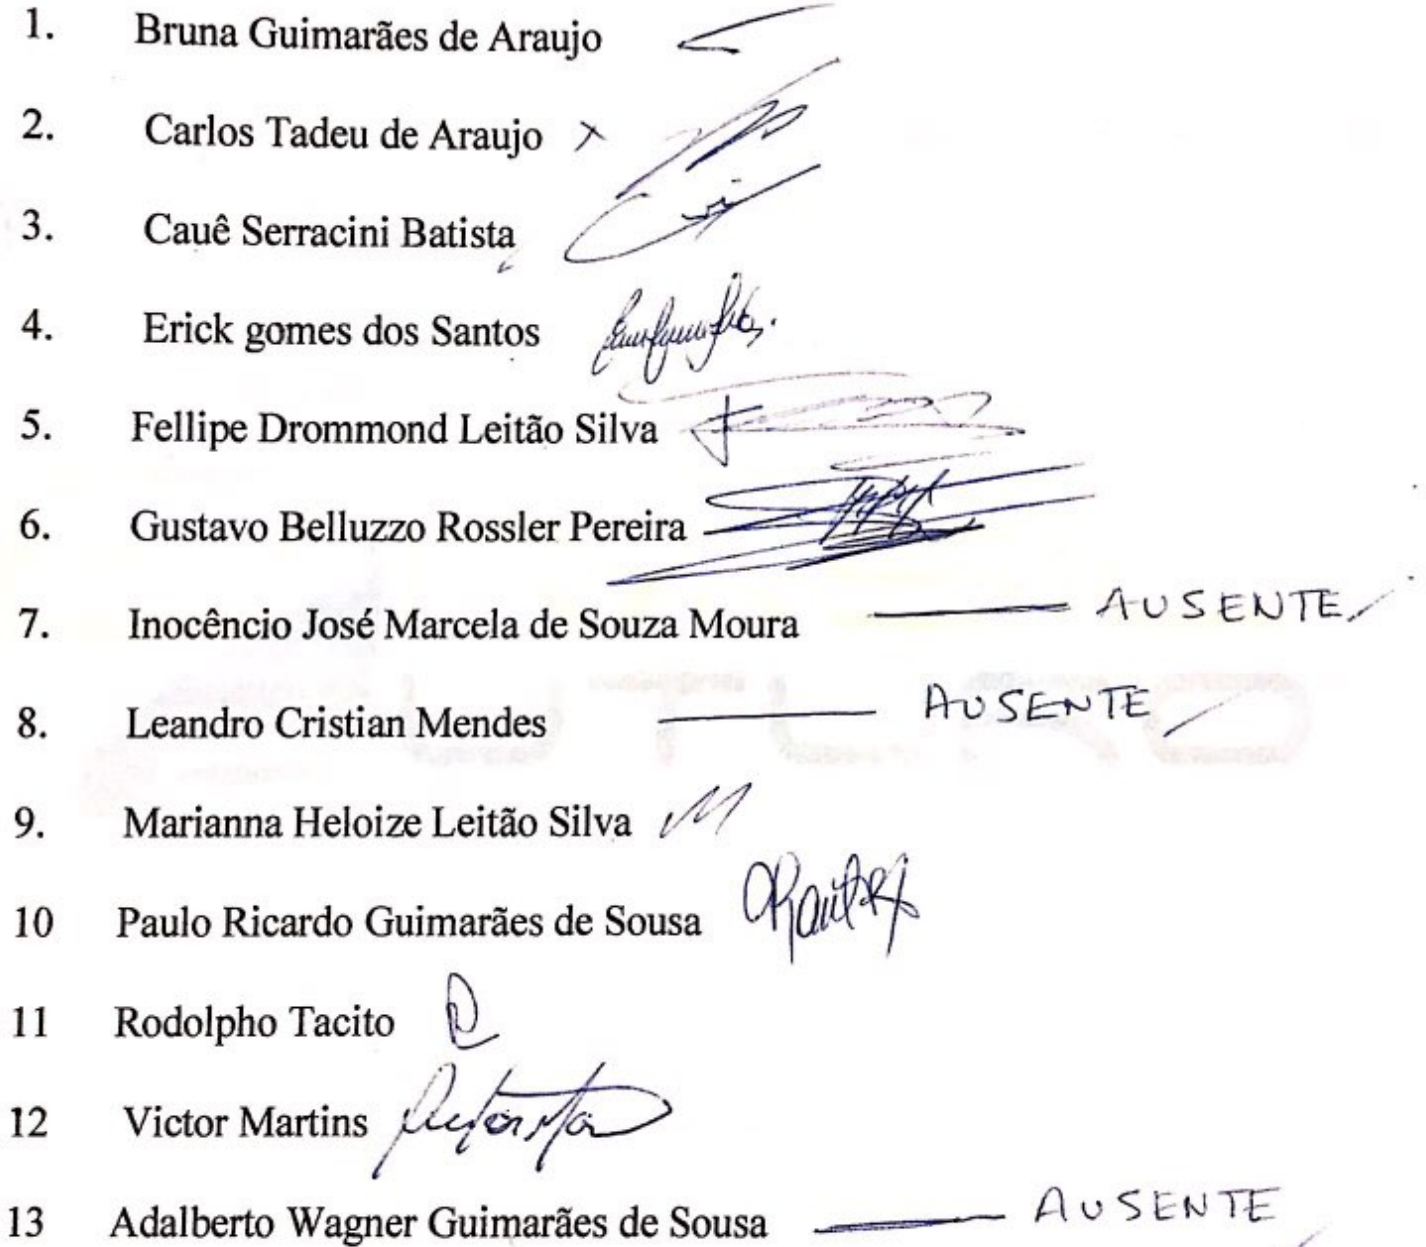 1. Bruna Guimarães de Araujo
2. Carlos Tadeu de Araujo x
3. Cauê Serracini Batista
4. Erick gomes dos Santos
5. Fellipe Drommond Leitão Silva
6. Gustavo Belluzzo Rossler Pereira
7. Inocêncio José Marcela de Souza Moura — AUSENTE
8. Leandro Cristian Mendes — AUSENTE
9. Marianna Heloize Leitão Silva
10 Paulo Ricardo Guimarães de Sousa
11 Rodolpho Tacito
12 Victor Martins
13 Adalberto Wagner Guimarães de Sousa — AUSENTE